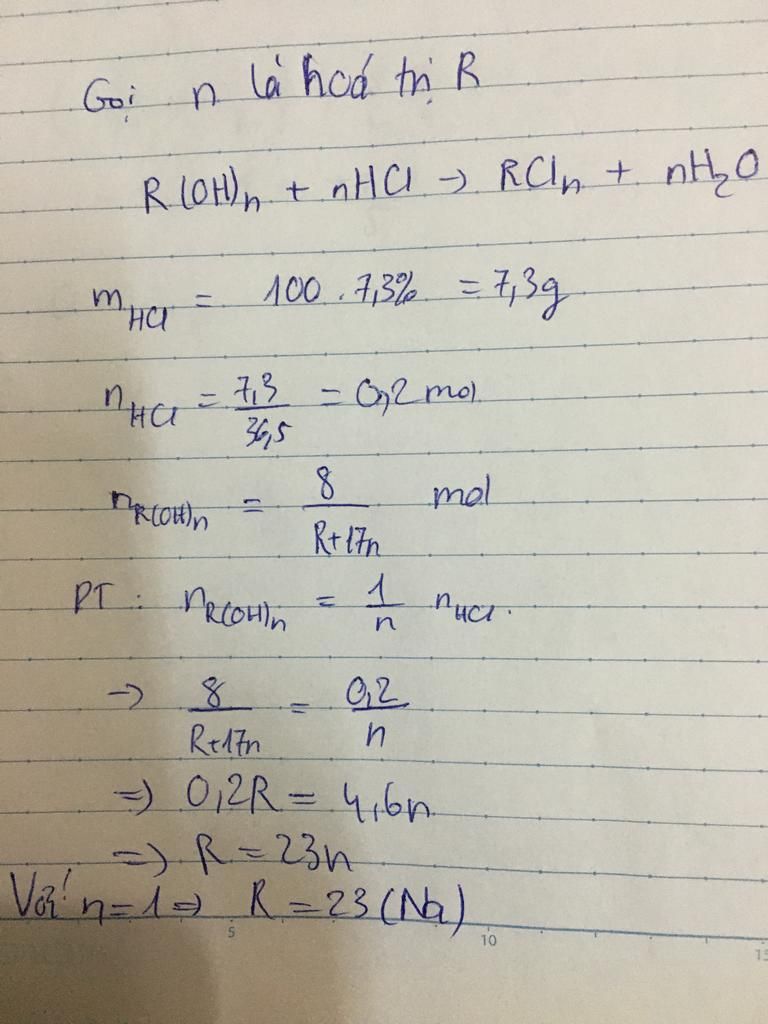 Gọi n là hoá trị R
R(OH)n + nHCl → RCln + nH2O
mHCl = 100 . 7,3% = 7,3g
nHCl = 7,3/36,5 = 0,2 mol
nR(OH)n = 8/R+17n mol
PT : nR(OH)n = 1/n nHCl.
→ 8/R+17n = 0,2/n
=> 0,2R = 4,6n
=> R = 23n
Với n=1 => R = 23 (Na)
5 10 15